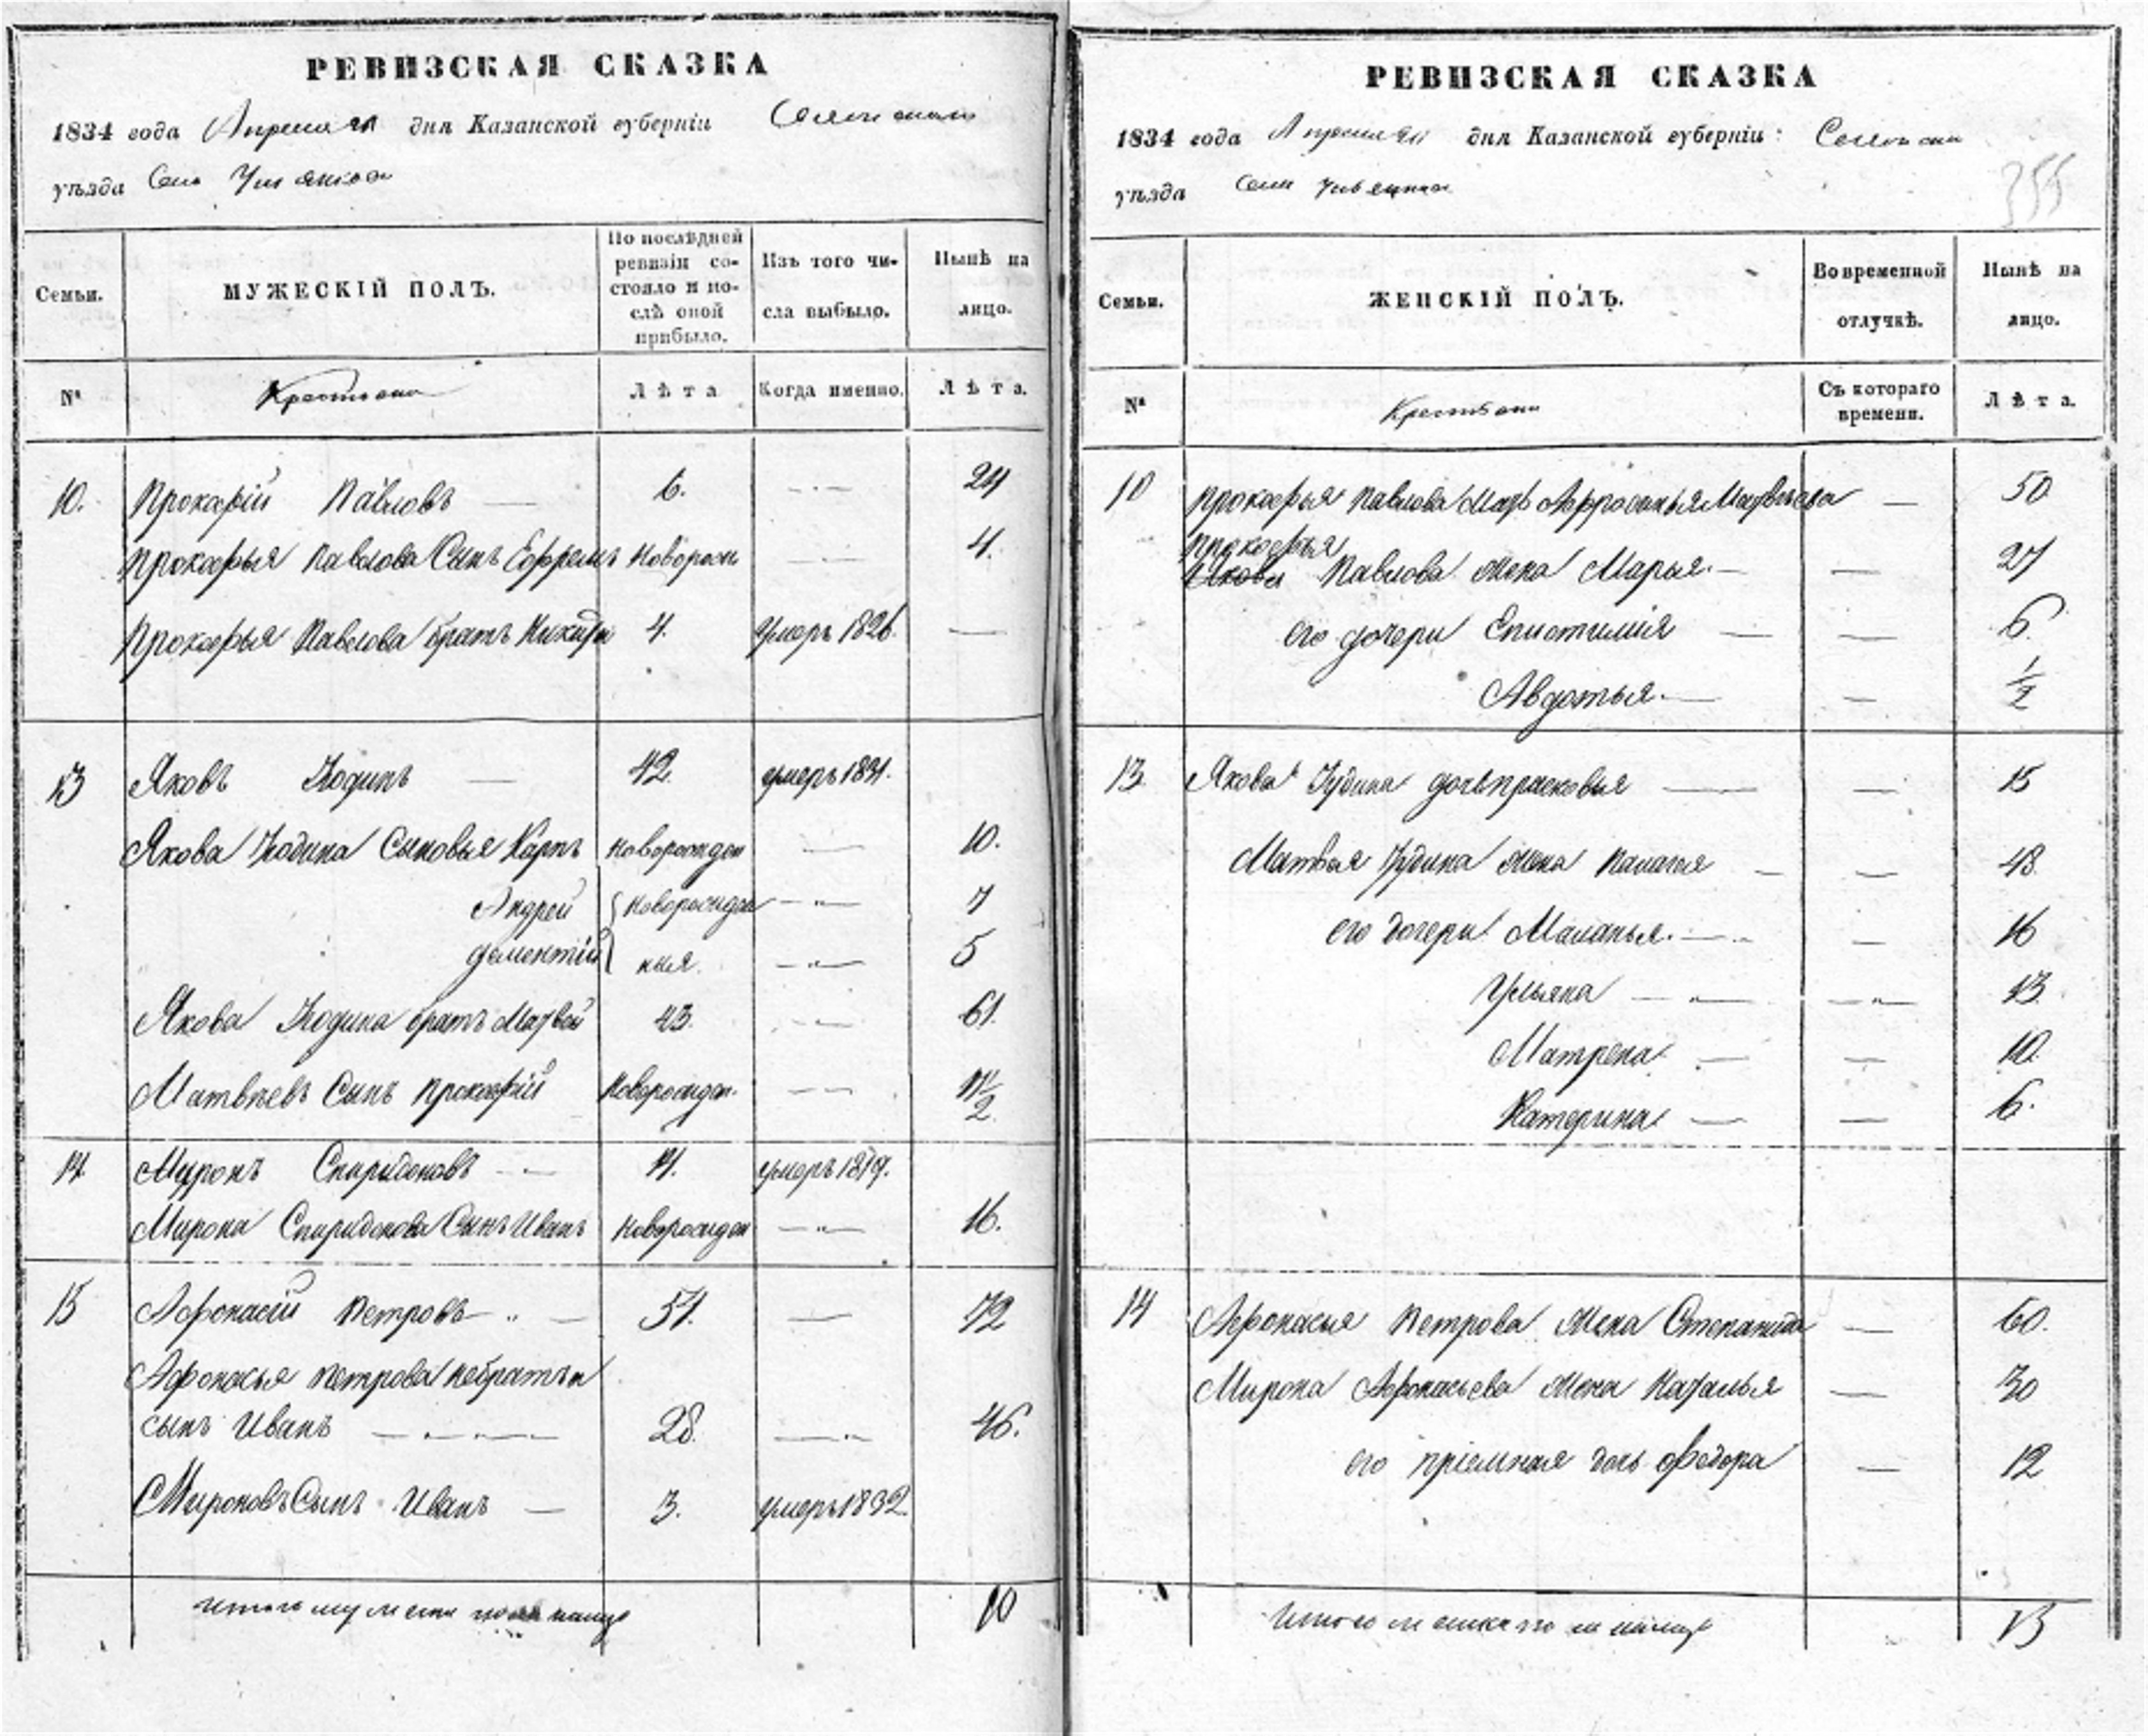 РЕВИЗСКАЯ СКАЗКА
1834 года Апреля дня Казанской губерніи
уѣзда Села
Семьи.
МУЖЕСКІЙ ПОЛЪ.
По послѣдней ревизіи состояло и послѣ оной прибыло.
Изъ того числа выбыло.
Нынѣ на лицо.
№
Крестьяне
Лѣта
Когда именно.
Лѣта.
10. Прокофій Павловъ — 6. — 24
Прокофья Павлова Сынъ Ефремъ Новорож — 4.
Прокофья Павлова братъ Никита 4. умеръ 1826. —
13 Яковъ Юдинъ — 42. умеръ 1831.
Якова Юдина Сыновья Карпъ новорожден — 10.
Андрей новорожден — 7
Дементій ныя. — 5
Якова Юдина братъ Матвей 43. — 61.
Матвѣевъ Сынъ Прокофій Новорожден. —
14 Миронъ Спиридоновъ — умеръ 1819.
Мирона Спиридонова Сынъ Иванъ новорожден — 16.
15 Афонасій Петровъ — 54. — 72
Афонасья Петрова
сынъ Иванъ — 28. — 46.
Мироновъ Сынъ Иванъ — 3. умеръ 1832.
Итого мужеска пола на лицо 10
РЕВИЗСКАЯ СКАЗКА
1834 года Апреля дня Казанской губерніи:
уѣзда Села
355
Семьи.
ЖЕНСКІЙ ПОЛЪ.
Во временной отлучкѣ.
Нынѣ на лицо.
№
Крестьяне
Съ котораго времени.
Лѣта.
10 Прокофья Павлова Мать Афросинья Матвѣева — 50
Прокофья
Якова Павлова жена Марья. — 27
его дочери Епистимія — 6
Авдотья. — 1/2
13. Якова Юдина дочь прасковья — 15
Матвья Юдина жена Палагья — 48.
его дочери Маланья. — 16
Ульяна — 13.
Матрена — 10.
Катерина — 6.
14 Афонасья Петрова жена Степанида — 60.
Мирона Афонасьева жена Наталья — 30
его пріемная дочь Федора — 12
Итого женскаго на лицо 13